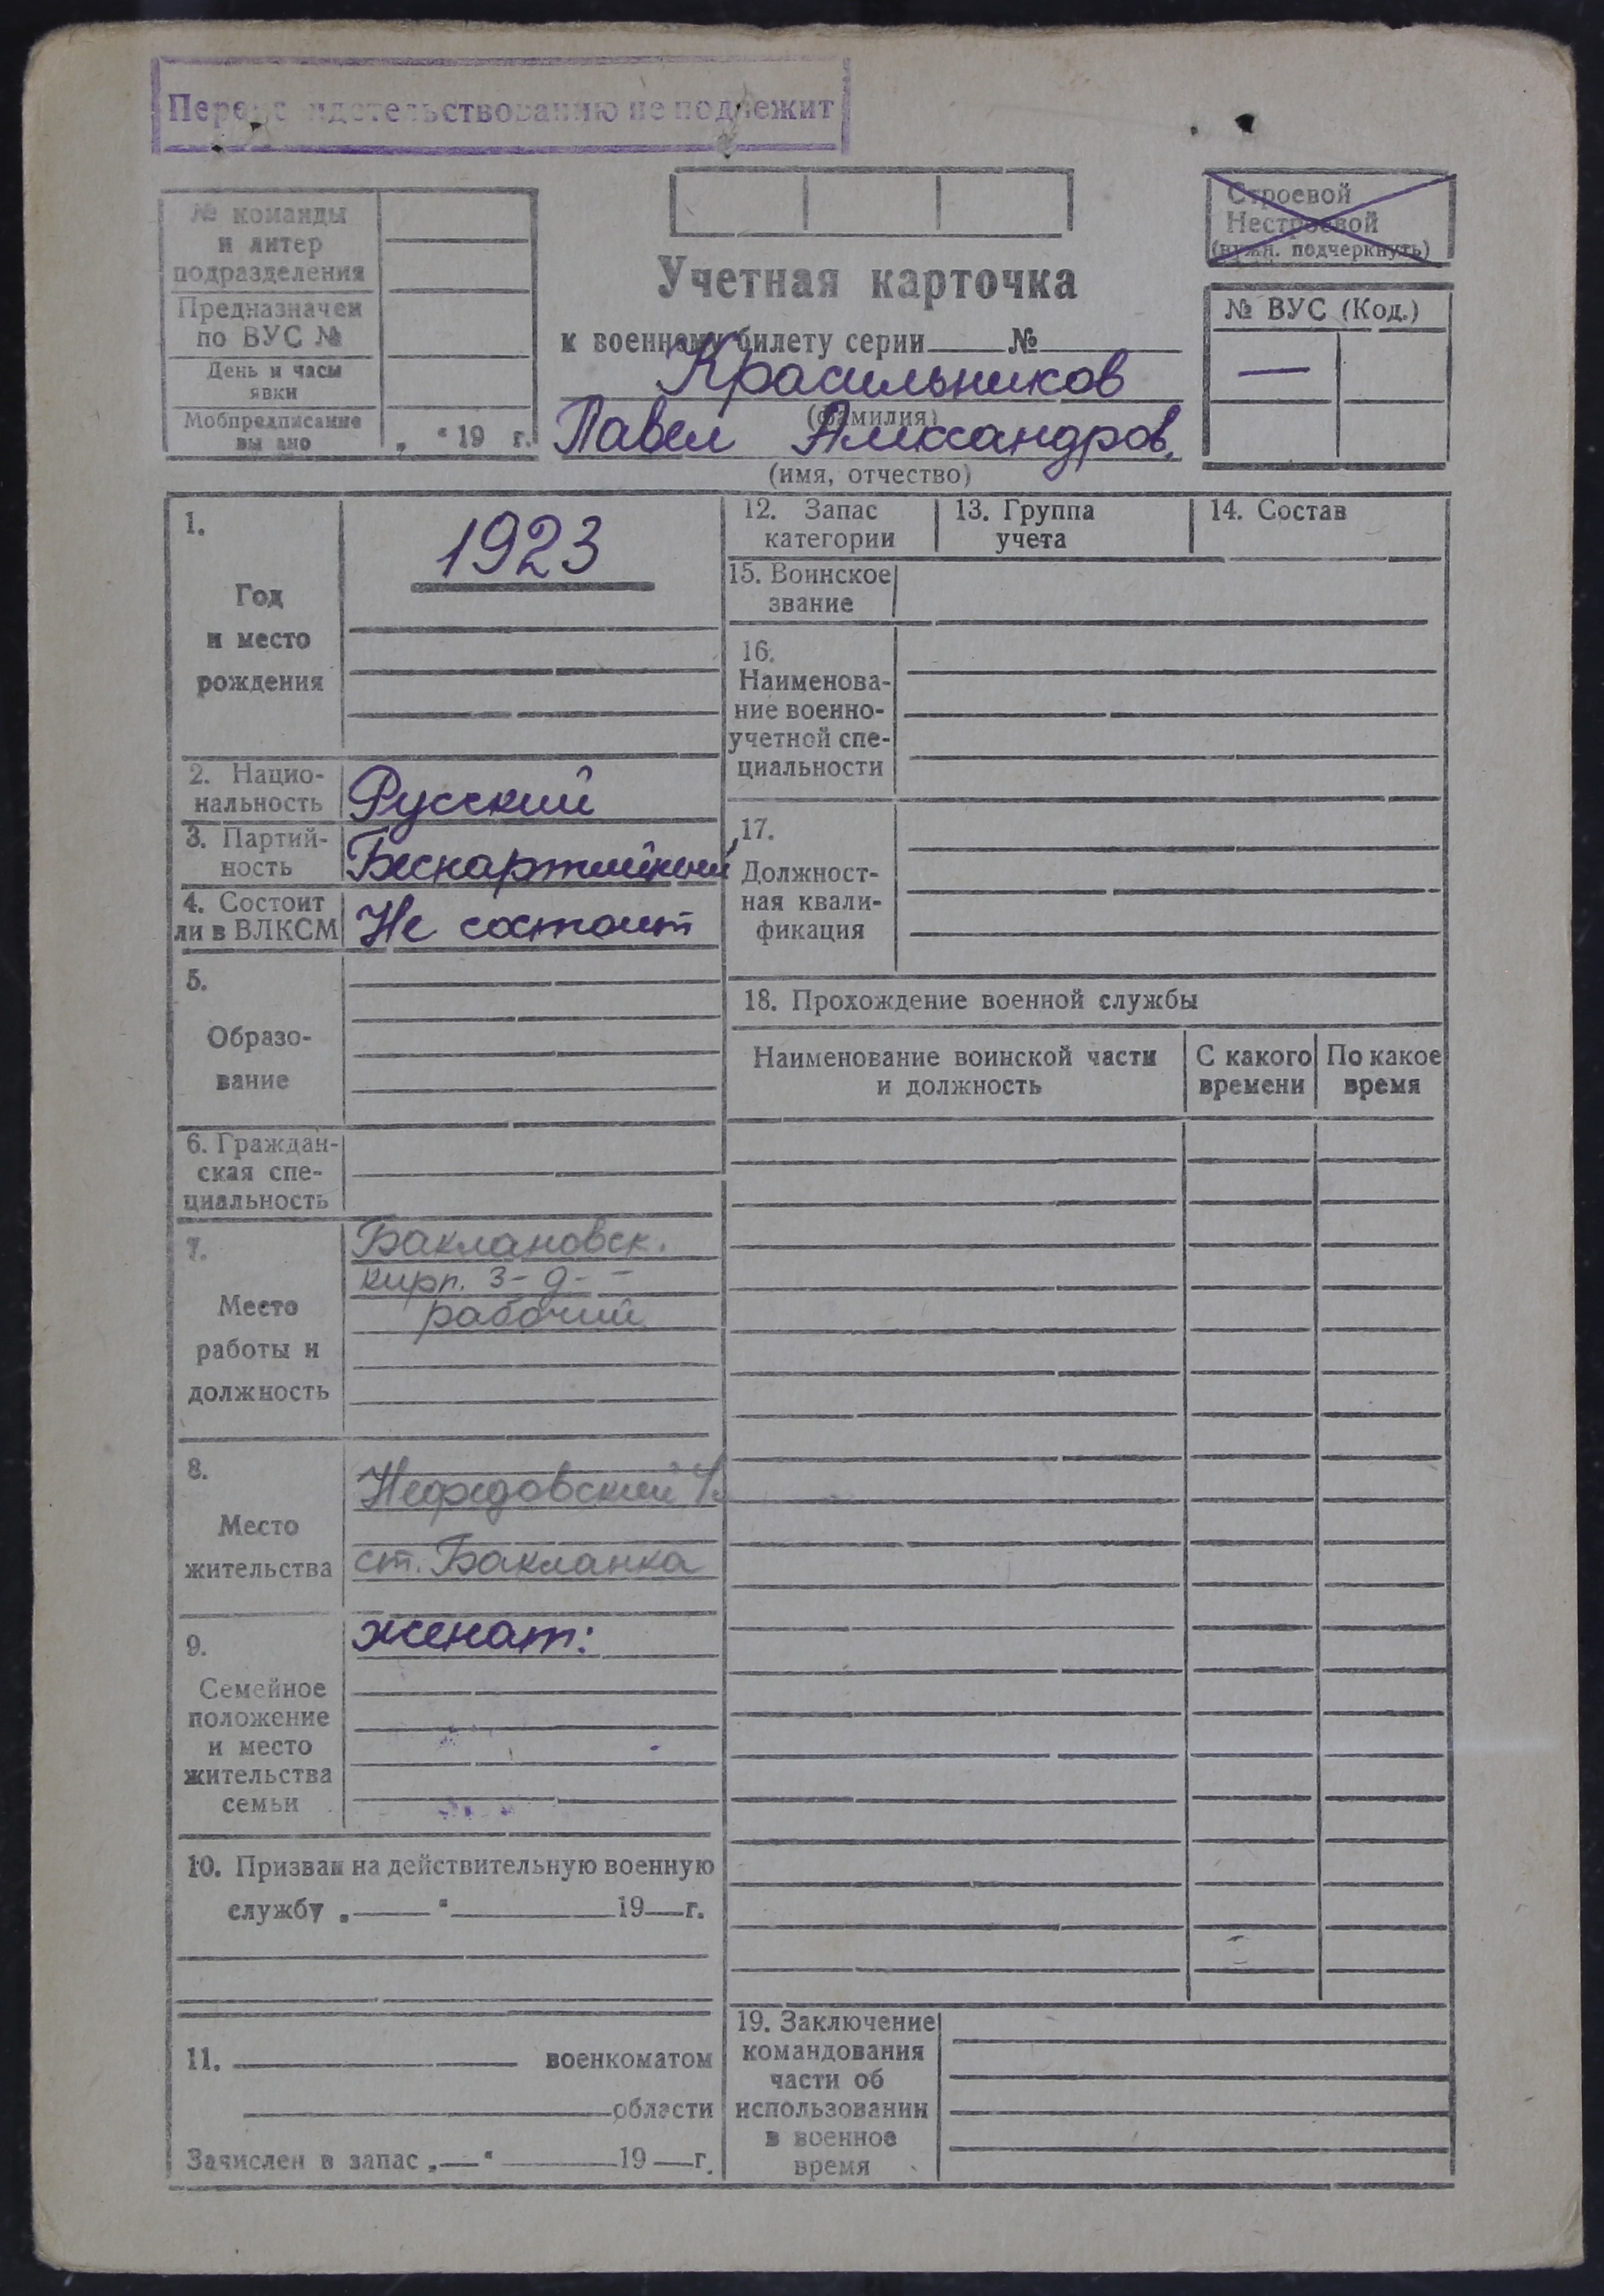 Переосвидетельствованию не подлежит
№ команды
и литер
подразделения
Предназначен
по ВУС №
День и часы
явки
Мобпредписание
вы ано
„ “ 19 г.
Учетная карточка
к военному билету серии №
Красильников
(фамилия)
Павел Александров.
(имя, отчество)
Строевой
Нестроевой
(нужн. подчеркнуть)
№ ВУС (Код.)
—
1.
Год
и место
рождения
1923
2. Нацио-
нальность
Русский
3. Партий-
ность
Беспартийный
4. Состоит
ли в ВЛКСМ
Не состоит
5.
Образо-
вание
6. Граждан-
ская спе-
циальность
7.
Место
работы и
должность
Баклановск.
кирп. з-д-
рабочий
8.
Место
жительства
Нефедовский
ст. Бакланка
9.
Семейное
положение
и место
жительства
семьи
женат:
10. Призван на действительную военную
службу „ “ 19 г.
11. военкоматом
области
Зачислен в запас „ “ 19 г.
12. Запас
категории
13. Группа
учета
14. Состав
15. Воинское
звание
16.
Наименова-
ние военно-
учетной спе-
циальности
17.
Должност-
ная квали-
фикация
18. Прохождение военной службы
Наименование воинской части
и должность
С какого
времени
По какое
время
19. Заключение
командования
части об
использовании
в военное
время